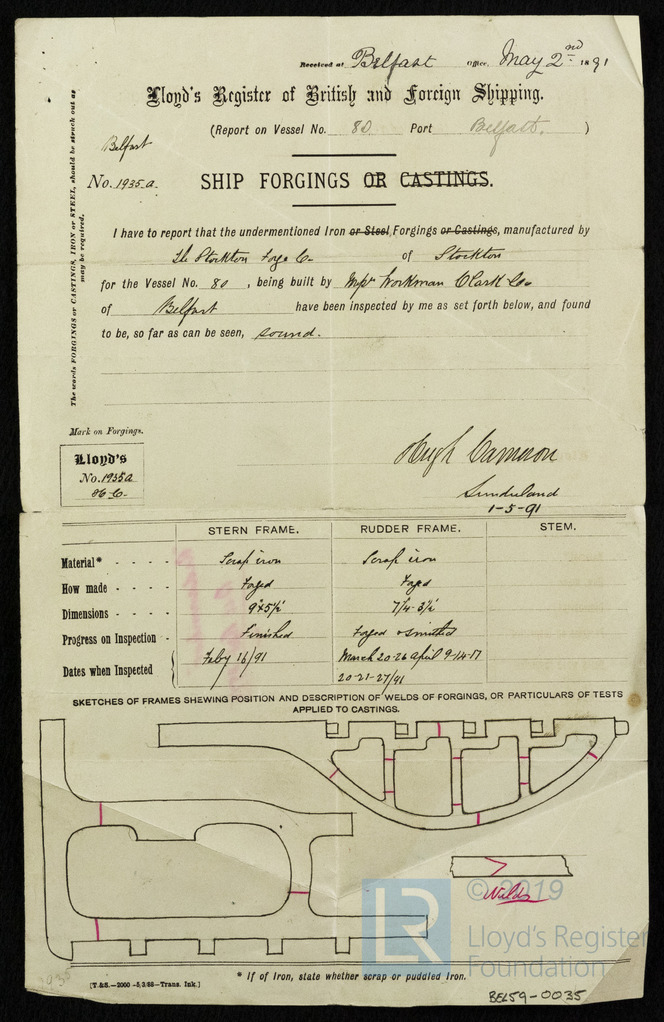 Received at Belfast Office, May 2nd 1891
Lloyd's Register of British and Foreign Shipping.
(Report on Vessel No. 80 Port Belfast. )
Belfast
No. 1935.a.
SHIP FORGINGS OR CASTINGS.
The words FORGINGS or CASTINGS, IRON or STEEL, should be struck out as
may be required.
I have to report that the undermentioned Iron or Steel, Forgings or Castings, manufactured by
The Stockton Forge Co. of Stockton
for the Vessel No. 80 , being built by Workman Clark Co.
of Belfast have been inspected by me as set forth below, and found
to be, so far as can be seen, sound.
Mark on Forgings.
Lloyd's
No. 1935a
H. C.
Hugh Cameron
Sunderland
1-5-91
STERN FRAME. RUDDER FRAME. STEM.
Material* - - - - Scrap iron Scrap iron
How made - - - - Forged Forged
Dimensions - - - - 9"x5½" 7¼-3½"
Progress on Inspection - Finished Forged
Dates when Inspected Feby 16/91 March 20-26 April 9-14-17
20-21-27/91
SKETCHES OF FRAMES SHEWING POSITION AND DESCRIPTION OF WELDS OF FORGINGS, OR PARTICULARS OF TESTS
APPLIED TO CASTINGS.
Welds
© 2019
LR
Lloyd's Register
Foundation
* If of Iron, state whether scrap or puddled Iron.
1935
[T &S.—2000 -5,3/88—Trans. Ink.]
BEL59-0035